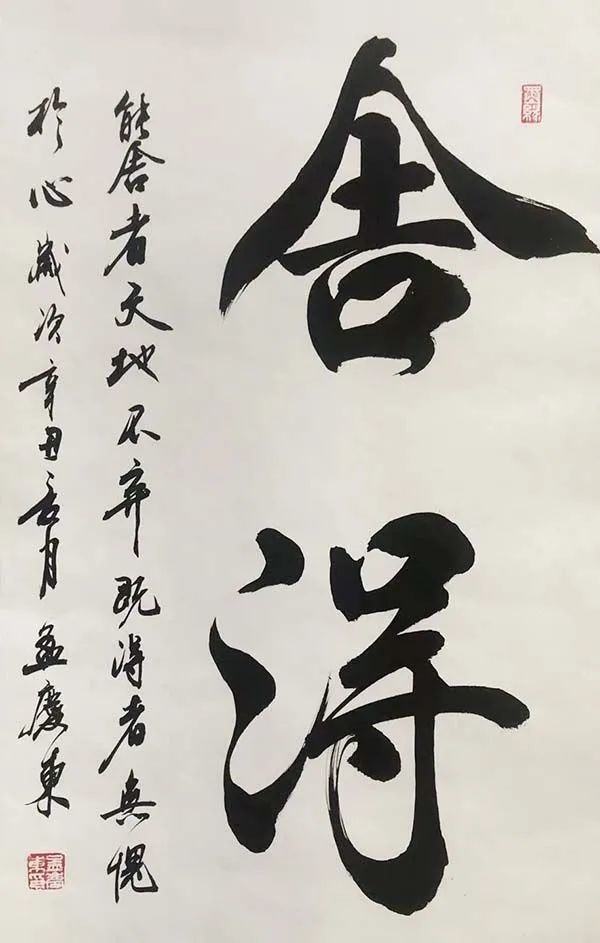 舍得
能舍者天地不弃既得者无愧
於心岁次辛丑之月孟庆东